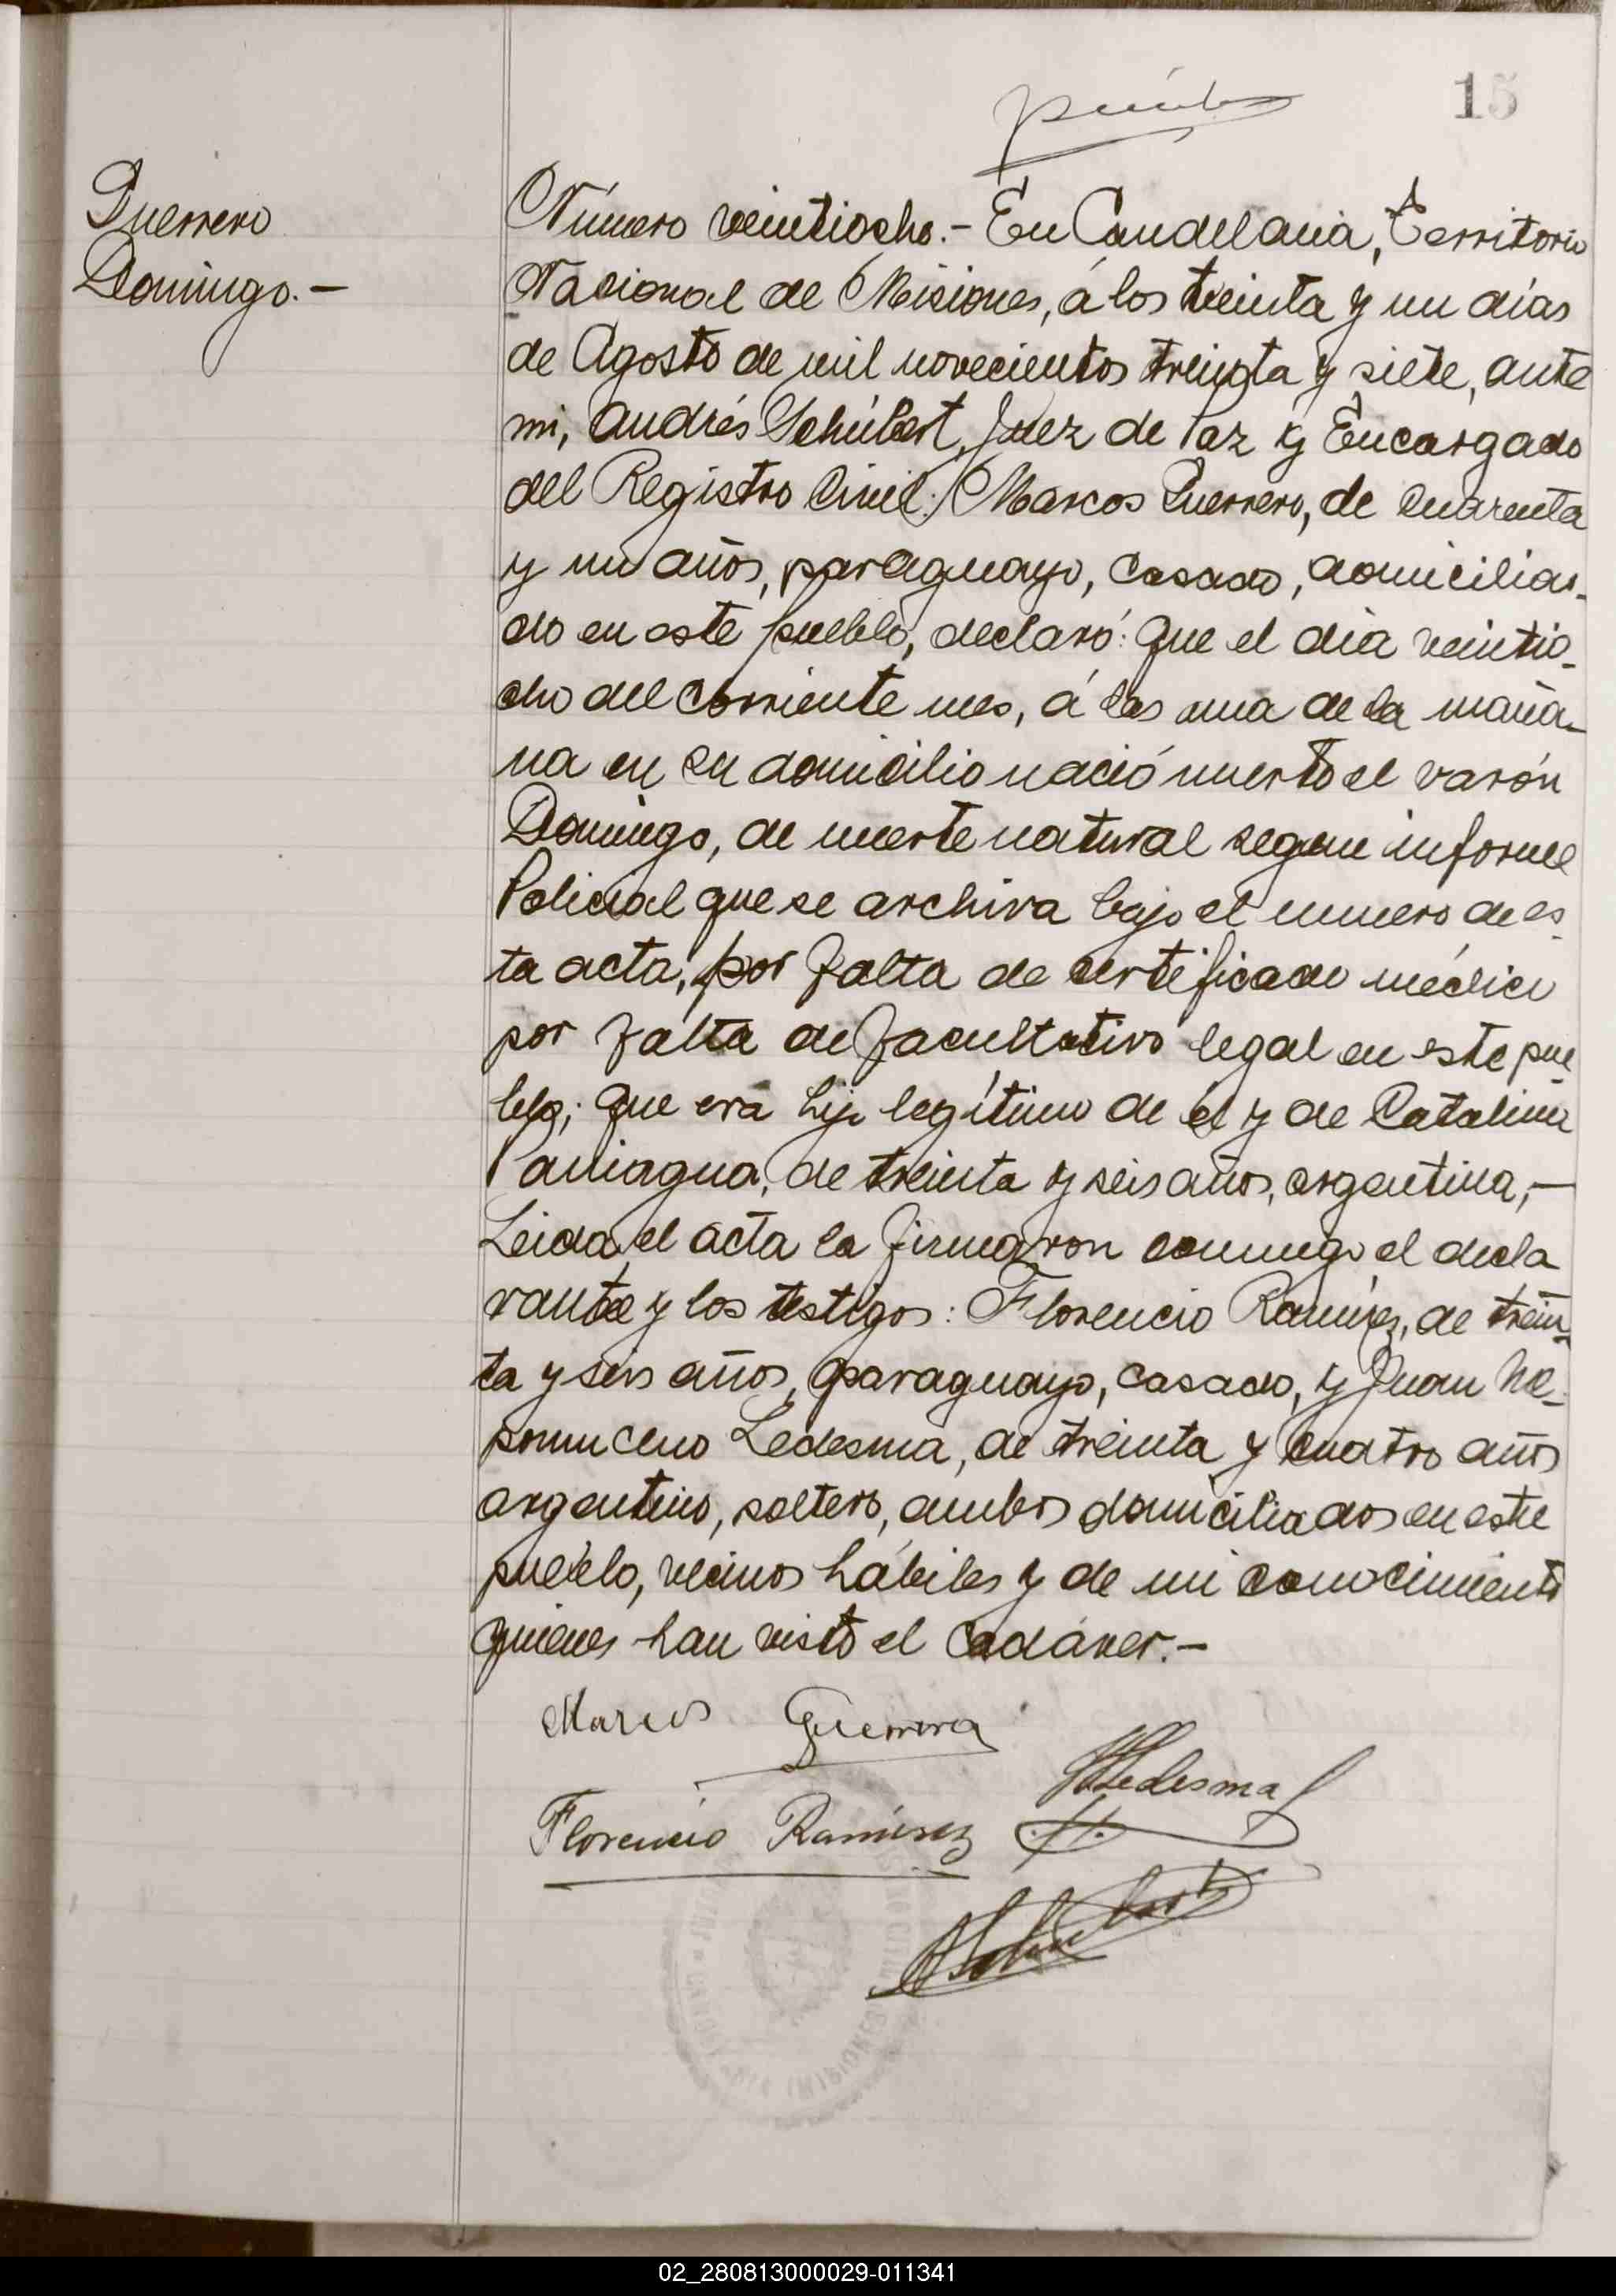 15
Guerrero
Domingo.—
Número veintiocho.- En Candelaria, Territorio
Nacional de Misiones, á los treinta y un días
de Agosto de mil novecientos treinta y siete, ante
mi, Andrés Schubert, Juez de Paz y Encargado
del Registro Civil: Marcos Guerrero, de cuarenta
y un años, paraguayo, casado, domicilia-
do en este pueblo, declaró: Que el día veintio-
cho del corriente mes, á las una de la maña-
na en su domicilio nació muerto el varón
Domingo, de muerte natural segun informe
Policial que se archiva bajo el numero de es-
ta acta, por falta de certificado médico
por falta de facultativo legal en este pue
blo; que era hijo legítimo de él y de Catalina
Paniagua, de treinta y seis años, argentina,—
Leida el acta la firmaron conmigo el decla
rante y los testigos: Florencio Ramírez, de trein-
ta y seis años, paraguayo, casado, y Juan Ne-
pomuceno Ledesma, de treinta y cuatro años
argentino, soltero, ambos domiciliados en este
pueblo, vecinos hábiles y de mi conocimiento
quienes han visto el cadáver.—
Marcos Guerrero
Ledesma
Florencio Ramírez
ASchubert
MISIONES
02_280813000029-011341